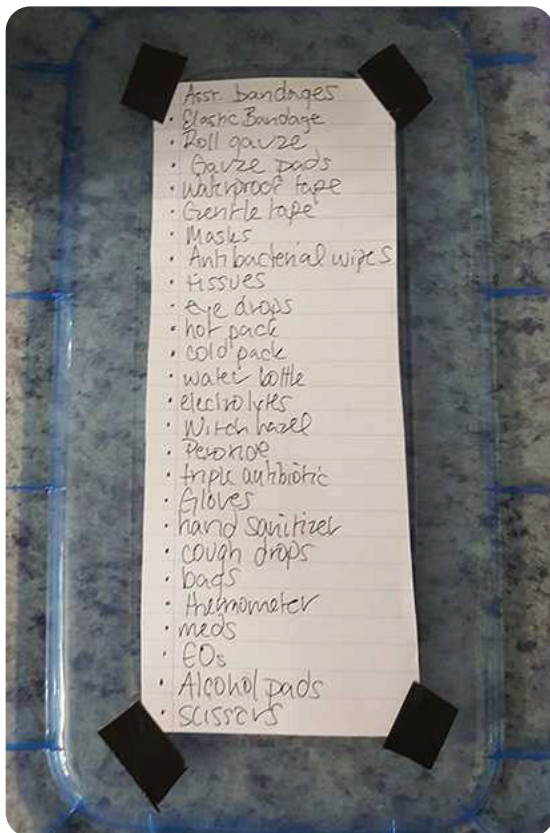 Asst. bandages
· Elastic Bandage
· Roll gauze
· Gauze pads
· waterproof tape
· Gentle tape
· Masks
· Antibacterial wipes
· tissues
· eye drops
· hot pack
· cold pack
· water bottle
· electrolytes
· Witch hazel
· Peroxide
· triple antibiotic
· Gloves
· hand sanitizer
· cough drops
· bags
· thermometer
· meds
· EOs
· Alcohol pads
· scissors